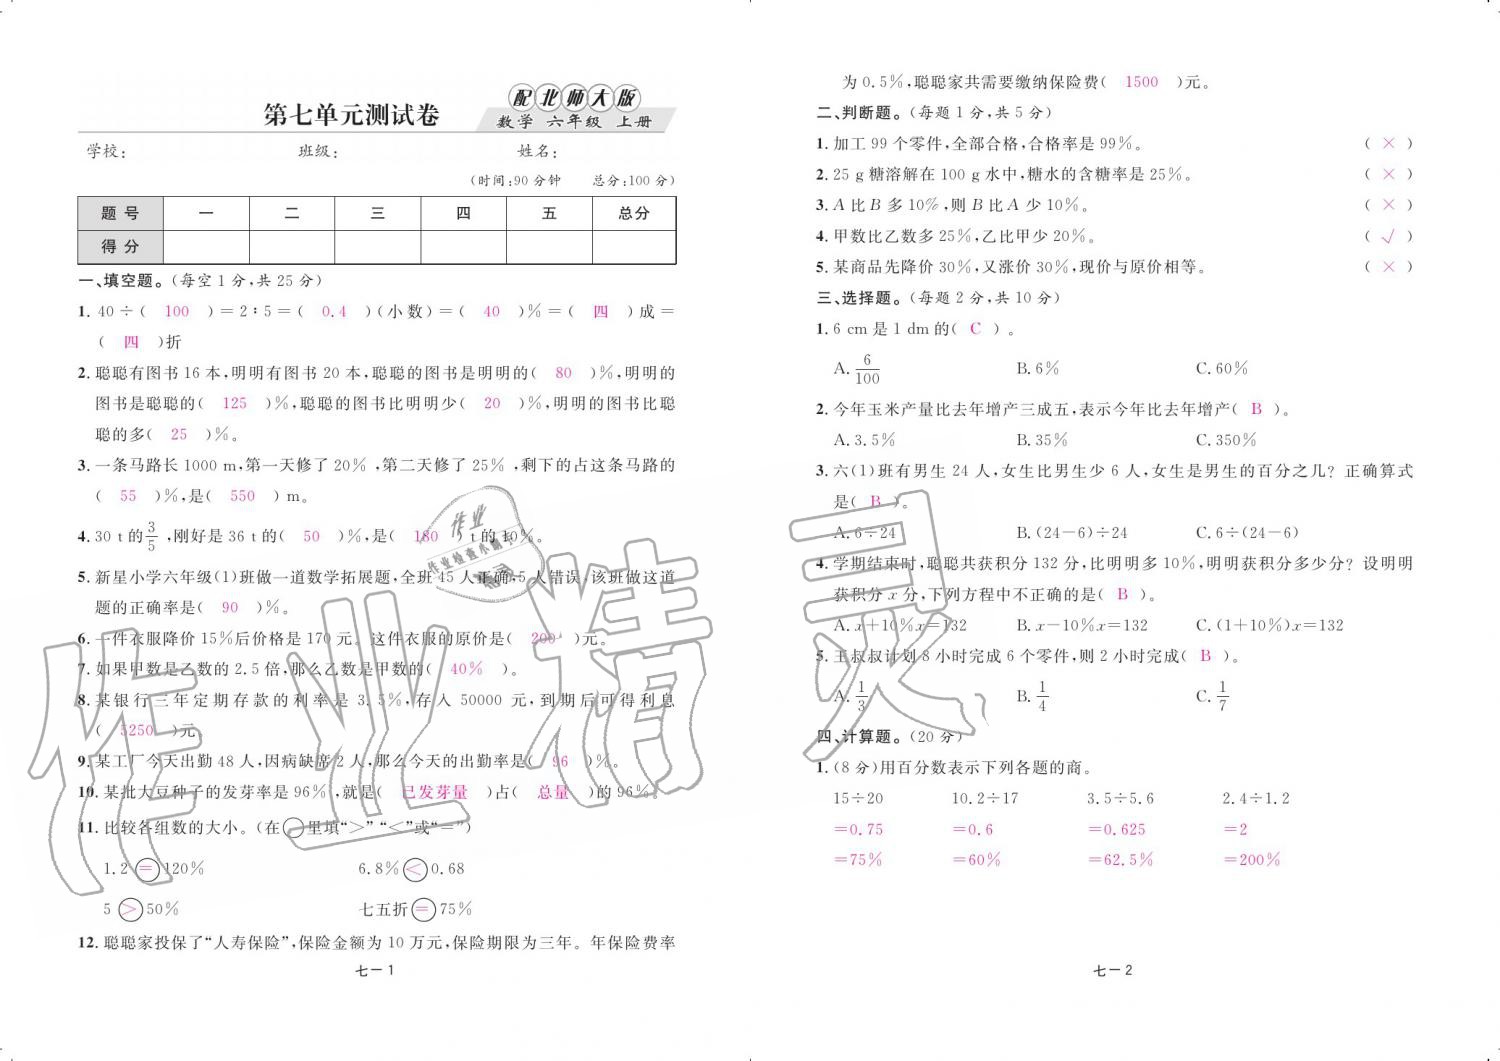 第七单元测试卷
配北师大版
数学 六年级 上册
学校: 班级: 姓名:
(时间:90分钟 总分:100分)
题号 一 二 三 四 五 总分
得分
一、填空题。(每空1分,共25分)
1. 40÷( 100 )=2∶5=( 0.4 )(小数)=( 40 )%=( 四 )成=
( 四 )折
2. 聪聪有图书16本,明明有图书20本,聪聪的图书是明明的( 80 )%,明明的
图书是聪聪的( 125 )%,聪聪的图书比明明少( 20 )%,明明的图书比聪
聪的多( 25 )%。
3. 一条马路长1000 m,第一天修了20%,第二天修了25%,剩下的占这条马路的
( 55 )%,是( 550 )m。
4. 30 t的3/5,刚好是36 t的( 50 )%,是( 180 )t的10%。
5. 新星小学六年级(1)班做一道数学拓展题,全班45人正确,5人错误,该班做这道
题的正确率是( 90 )%。
6. 一件衣服降价15%后价格是170元。这件衣服的原价是( 200 )元。
7. 如果甲数是乙数的2.5倍,那么乙数是甲数的( 40% )。
8. 某银行三年定期存款的利率是3.5%,存入50000元,到期后可得利息
( 5250 )元。
9. 某工厂今天出勤48人,因病缺席2人,那么今天的出勤率是( 96 )%。
10. 某批大豆种子的发芽率是96%,就是( 已发芽量 )占( 总量 )的96%。
11. 比较各组数的大小。(在○里填“>”“<”或“=”)
1.2 = 120% 6.8% < 0.68
5 > 50% 七五折 = 75%
12. 聪聪家投保了“人寿保险”,保险金额为10万元,保险期限为三年。年保险费率
七－1
为0.5%,聪聪家共需要缴纳保险费( 1500 )元。
二、判断题。(每题1分,共5分)
1. 加工99个零件,全部合格,合格率是99%。 ( × )
2. 25 g糖溶解在100 g水中,糖水的含糖率是25%。 ( × )
3. A比B多10%,则B比A少10%。 ( × )
4. 甲数比乙数多25%,乙比甲少20%。 ( √ )
5. 某商品先降价30%,又涨价30%,现价与原价相等。 ( × )
三、选择题。(每题2分,共10分)
1. 6 cm是1 dm的( C )。
A. 6/100 B. 6% C. 60%
2. 今年玉米产量比去年增产三成五,表示今年比去年增产( B )。
A. 3.5% B. 35% C. 350%
3. 六(1)班有男生24人,女生比男生少6人,女生是男生的百分之几?正确算式
是( B )。
A. 6÷24 B. (24－6)÷24 C. 6÷(24－6)
4. 学期结束时,聪聪共获积分132分,比明明多10%,明明获积分多少分?设明明
获积分x分,下列方程中不正确的是( B )。
A. x＋10%x＝132 B. x－10%x＝132 C. (1＋10%)x＝132
5. 王叔叔计划8小时完成6个零件,则2小时完成( B )。
A. 1/3 B. 1/4 C. 1/7
四、计算题。(20分)
1. (8分)用百分数表示下列各题的商。
15÷20 10.2÷17 3.5÷5.6 2.4÷1.2
=0.75 =0.6 =0.625 =2
=75% =60% =62.5% =200%
七－2
作业精灵
作业
作业检查小助手